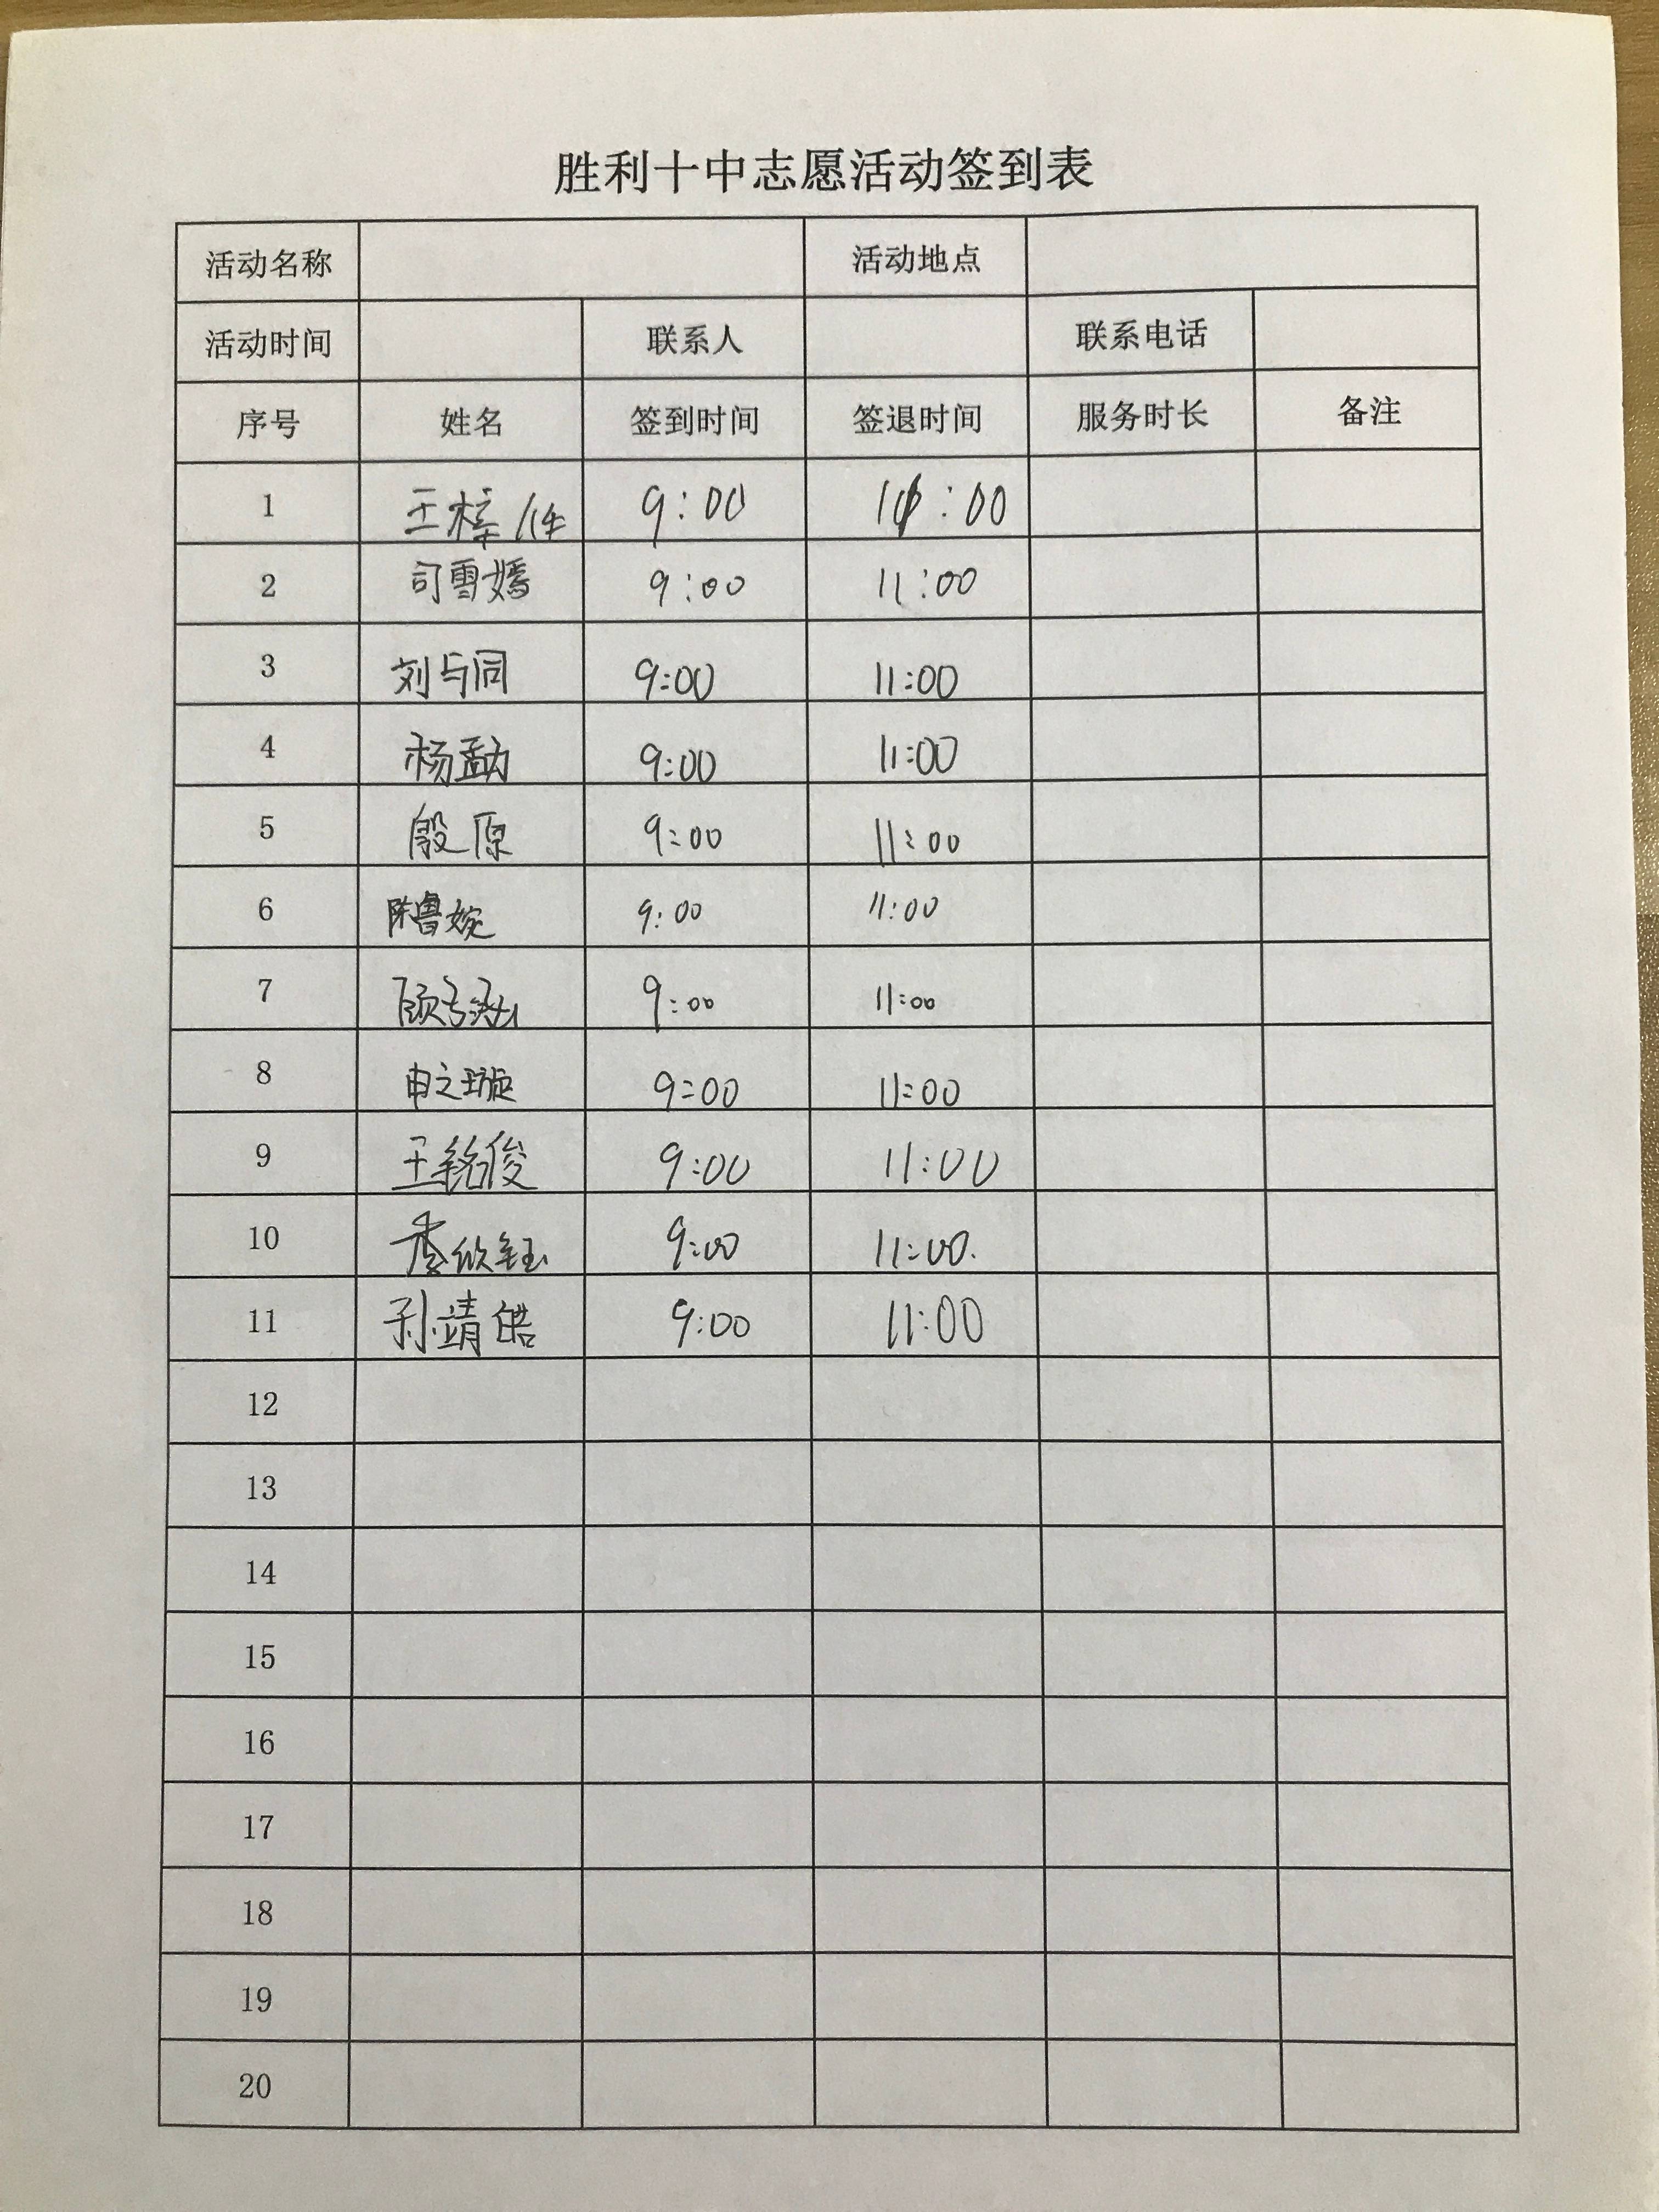 胜利十中志愿活动签到表
活动名称 活动地点
活动时间 联系人 联系电话
序号 姓名 签到时间 签退时间 服务时长 备注
1 王梓 9:00 11:00
2 司雪嫣 9:00 11:00
3 刘与同 9:00 11:00
4 杨孟勋 9:00 11:00
5 殷原 9:00 11:00
6 陈鲁婉 9:00 11:00
7 9:00 11:00
8 申之璇 9:00 11:00
9 王铭俊 9:00 11:00
10 李欣钰 9:00 11:00.
11 孙靖皓 9:00 11:00
12
13
14
15
16
17
18
19
20